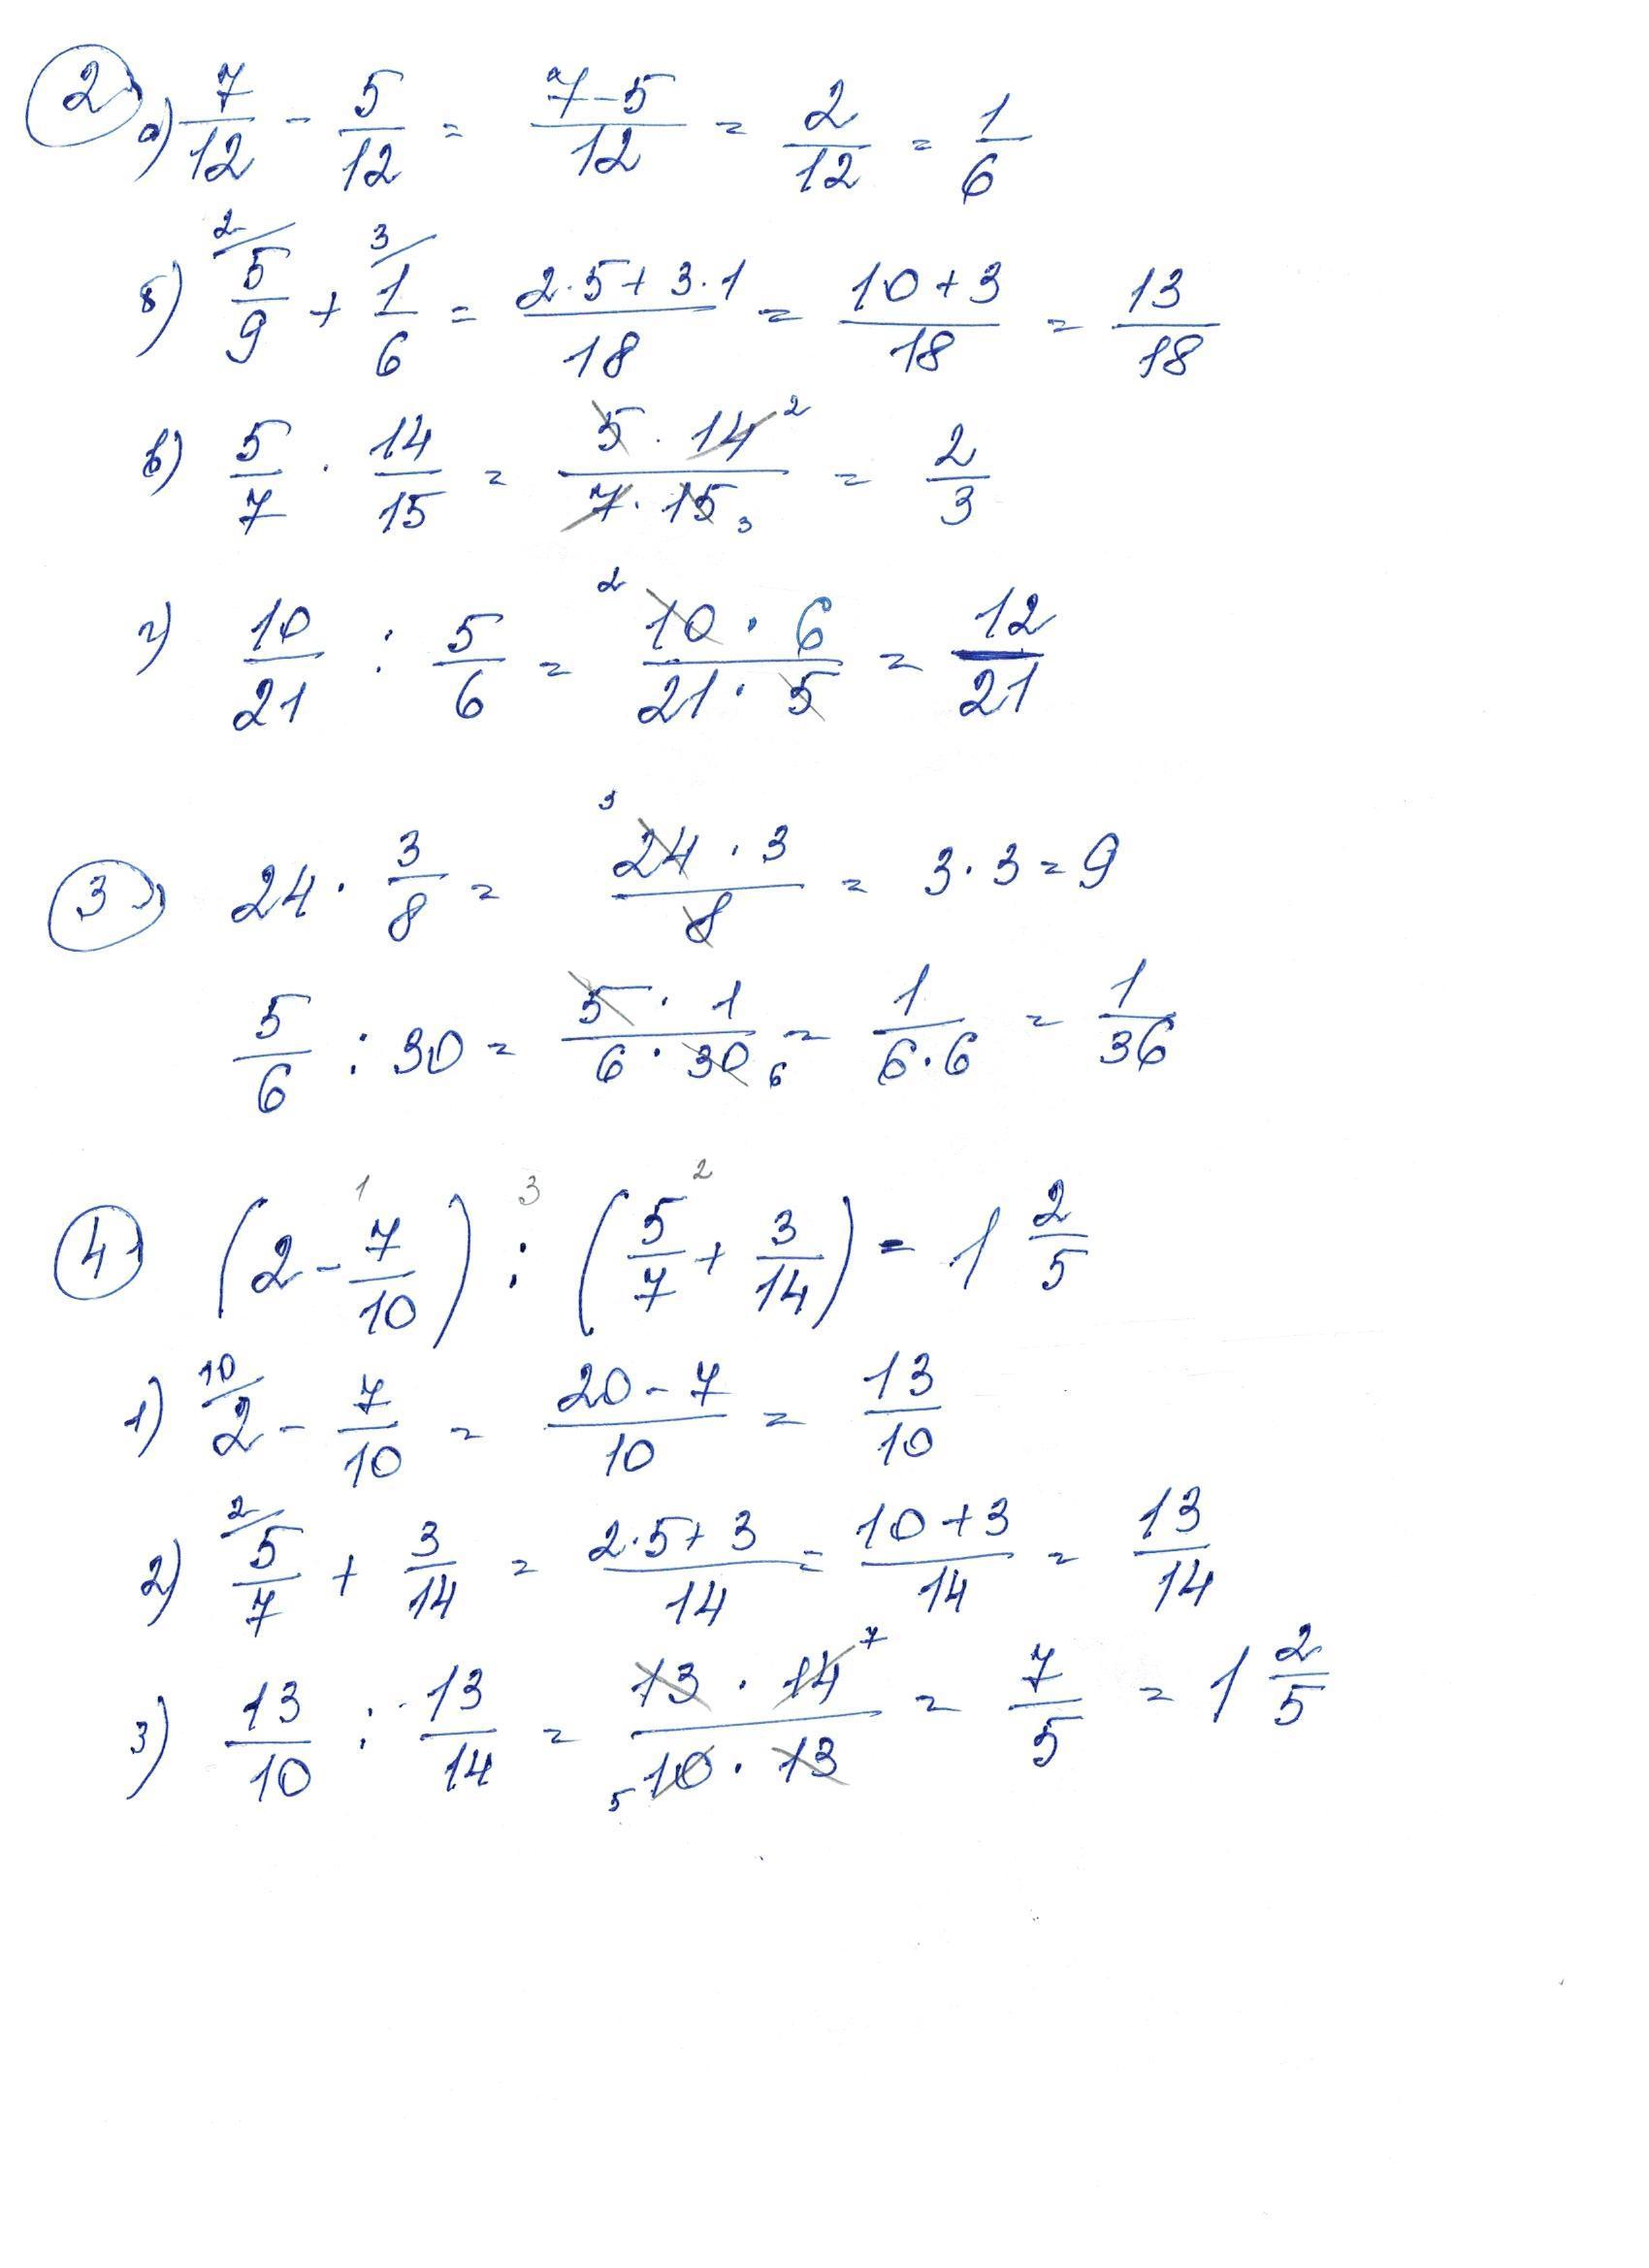 2. а) 7/12 - 5/12 = (7-5)/12 = 2/12 = 1/6
б) ²⁄ 5/9 + ³⁄ 1/6 = (2·5+3·1)/18 = (10+3)/18 = 13/18
в) 5/7 · 14/15 = (5·14 ²)/(7·15 ₃) = 2/3
г) 10/21 : 5/6 = (² 10·6)/(21·5) = 12/21
3. 24 · 3/8 = (³ 24·3)/8 = 3·3=9
5/6 : 30 = (5·1)/(6·30 ₆) = 1/(6·6) = 1/36
1 3 2
4. (2 - 7/10) : (5/7 + 3/14) = 1 2/5
1) ¹⁰⁄ 2 - 7/10 = (20-7)/10 = 13/10
2) ²⁄ 5/7 + 3/14 = (2·5+3)/14 = (10+3)/14 = 13/14
3) 13/10 : 13/14 = (13·14 ⁷)/(₅ 10·13) = 7/5 = 1 2/5